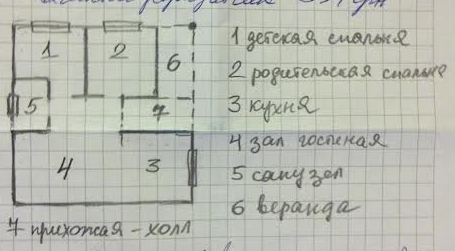 1 2 6
5 7
4 3
1 детская спальня
2 родительская спальня
3 кухня
4 зал гостиная
5 санузел
6 веранда
7 прихожая - холл